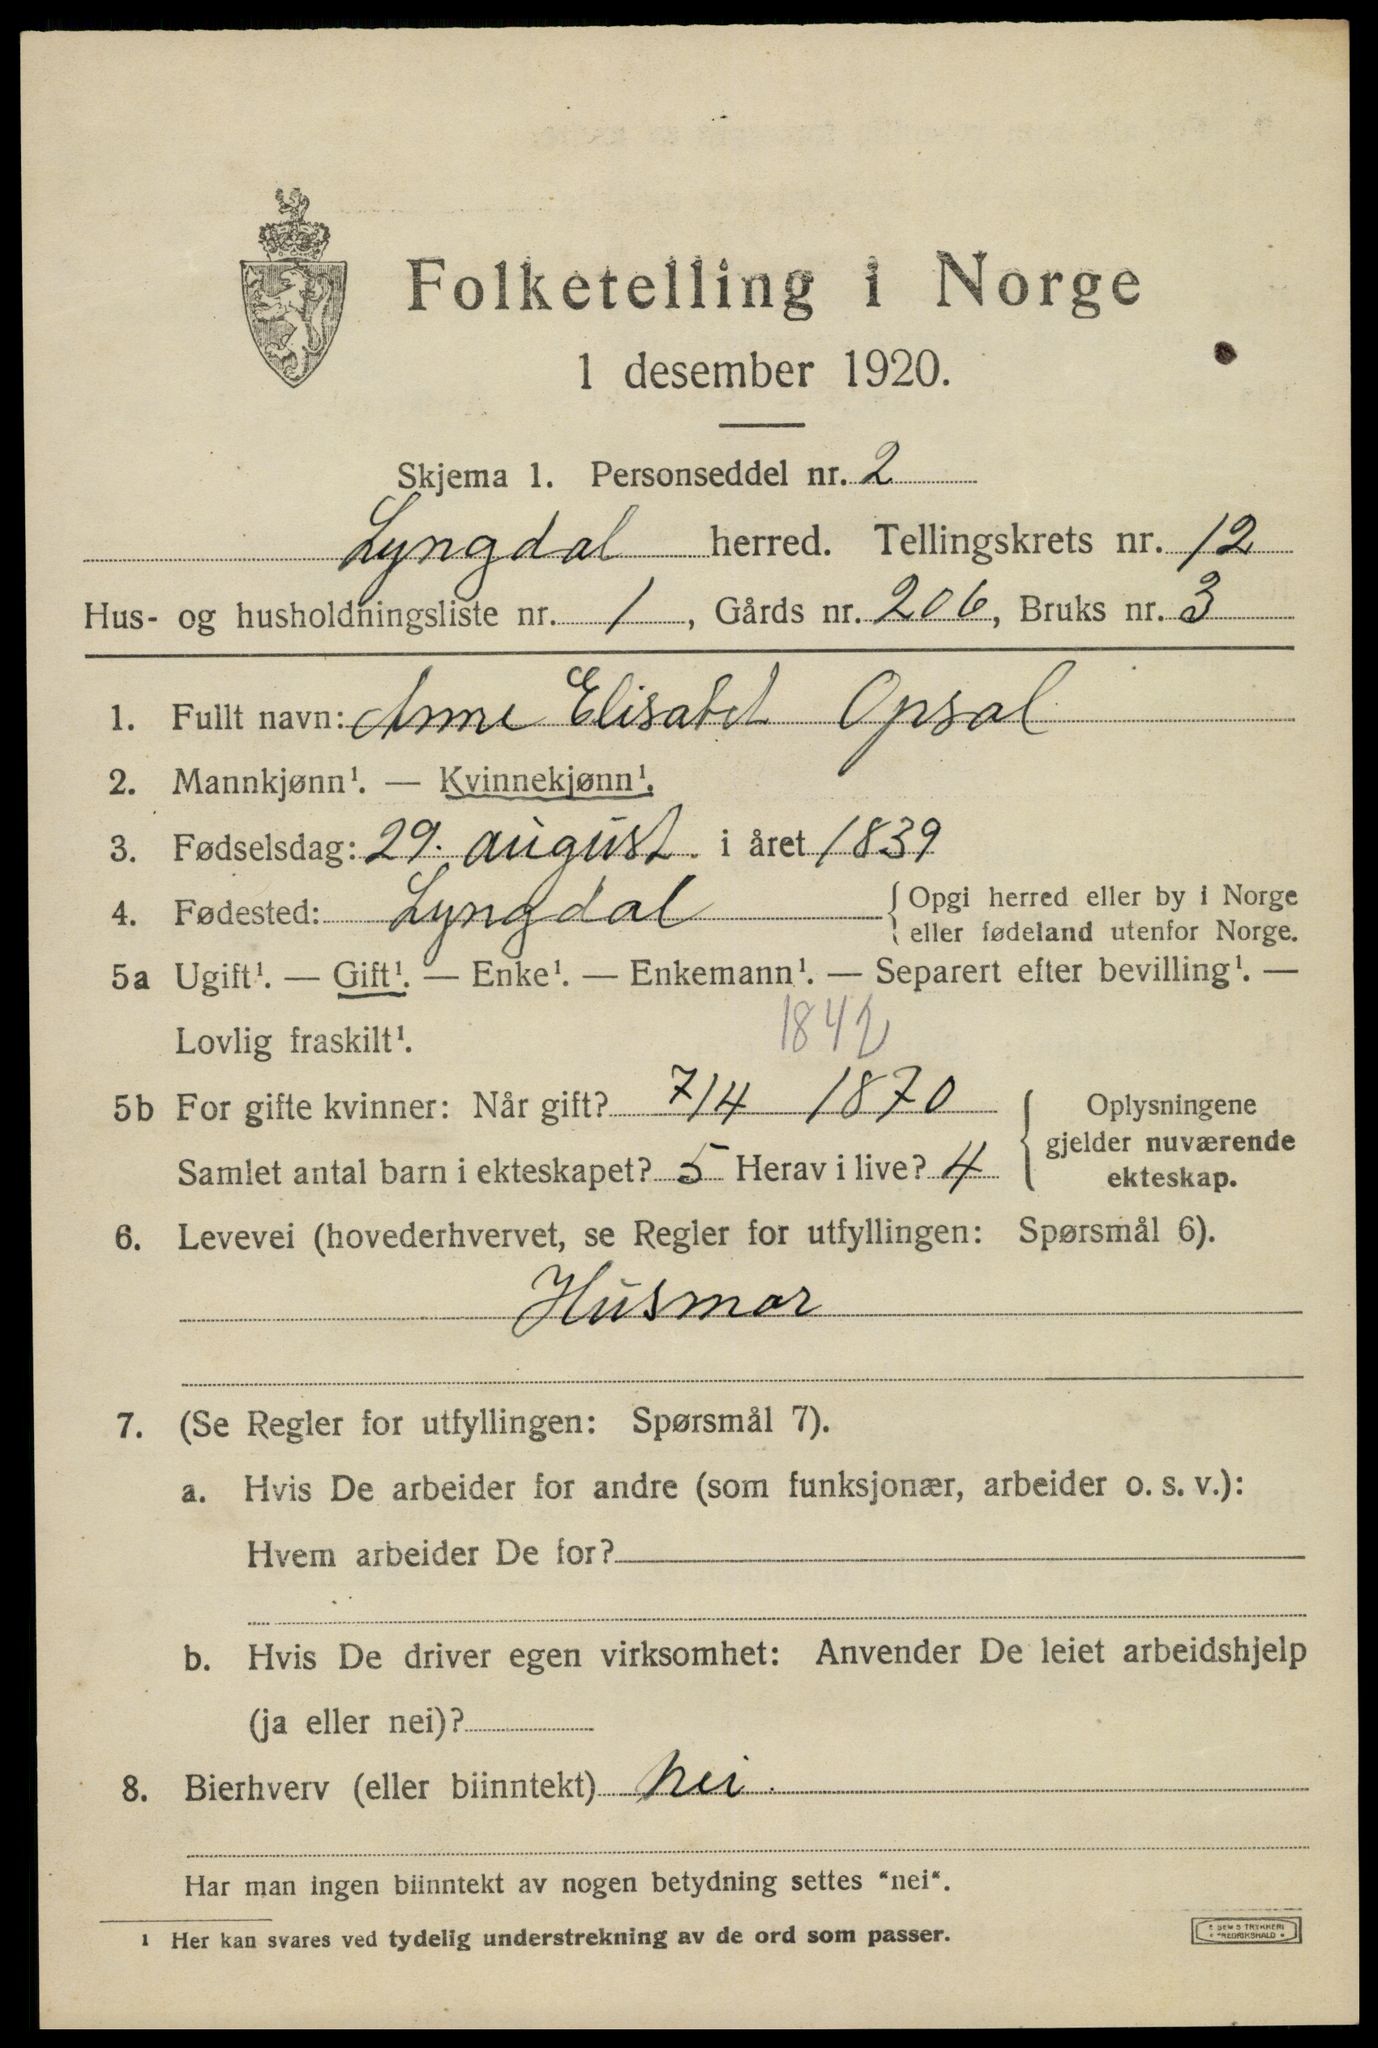 Folketelling i Norge
1 desember 1920.
Skjema 1. Personseddel nr. 2
Lyngdal herred. Tellingskrets nr. 12
Hus- og husholdningsliste nr. 1, Gårds nr. 206, Bruks nr. 3
1. Fullt navn: Anne Elisabet Opsal
2. Mannkjønn¹. — Kvinnekjønn¹.
3. Fødselsdag: 29. august i året 1839
4. Fødested: Lyngdal { Opgi herred eller by i Norge
eller fødeland utenfor Norge.
5a Ugift¹. — Gift¹. — Enke¹. — Enkemann¹. — Separert efter bevilling¹. —
Lovlig fraskilt¹. 1842
5b For gifte kvinner: Når gift? 7/4 1870 { Oplysningene
gjelder nuværende
Samlet antal barn i ekteskapet? 5 Herav i live? 4 ekteskap.
6. Levevei (hovederhvervet, se Regler for utfyllingen: Spørsmål 6).
Husmor
7. (Se Regler for utfyllingen: Spørsmål 7).
a. Hvis De arbeider for andre (som funksjonær, arbeider o. s. v.):
Hvem arbeider De for?
b. Hvis De driver egen virksomhet: Anvender De leiet arbeidshjelp
(ja eller nei)?
8. Bierhverv (eller biinntekt) Nei.
Har man ingen biinntekt av nogen betydning settes "nei".
¹ Her kan svares ved tydelig understrekning av de ord som passer.
E SEMS TRYKKERI
FREDRIKSHALD